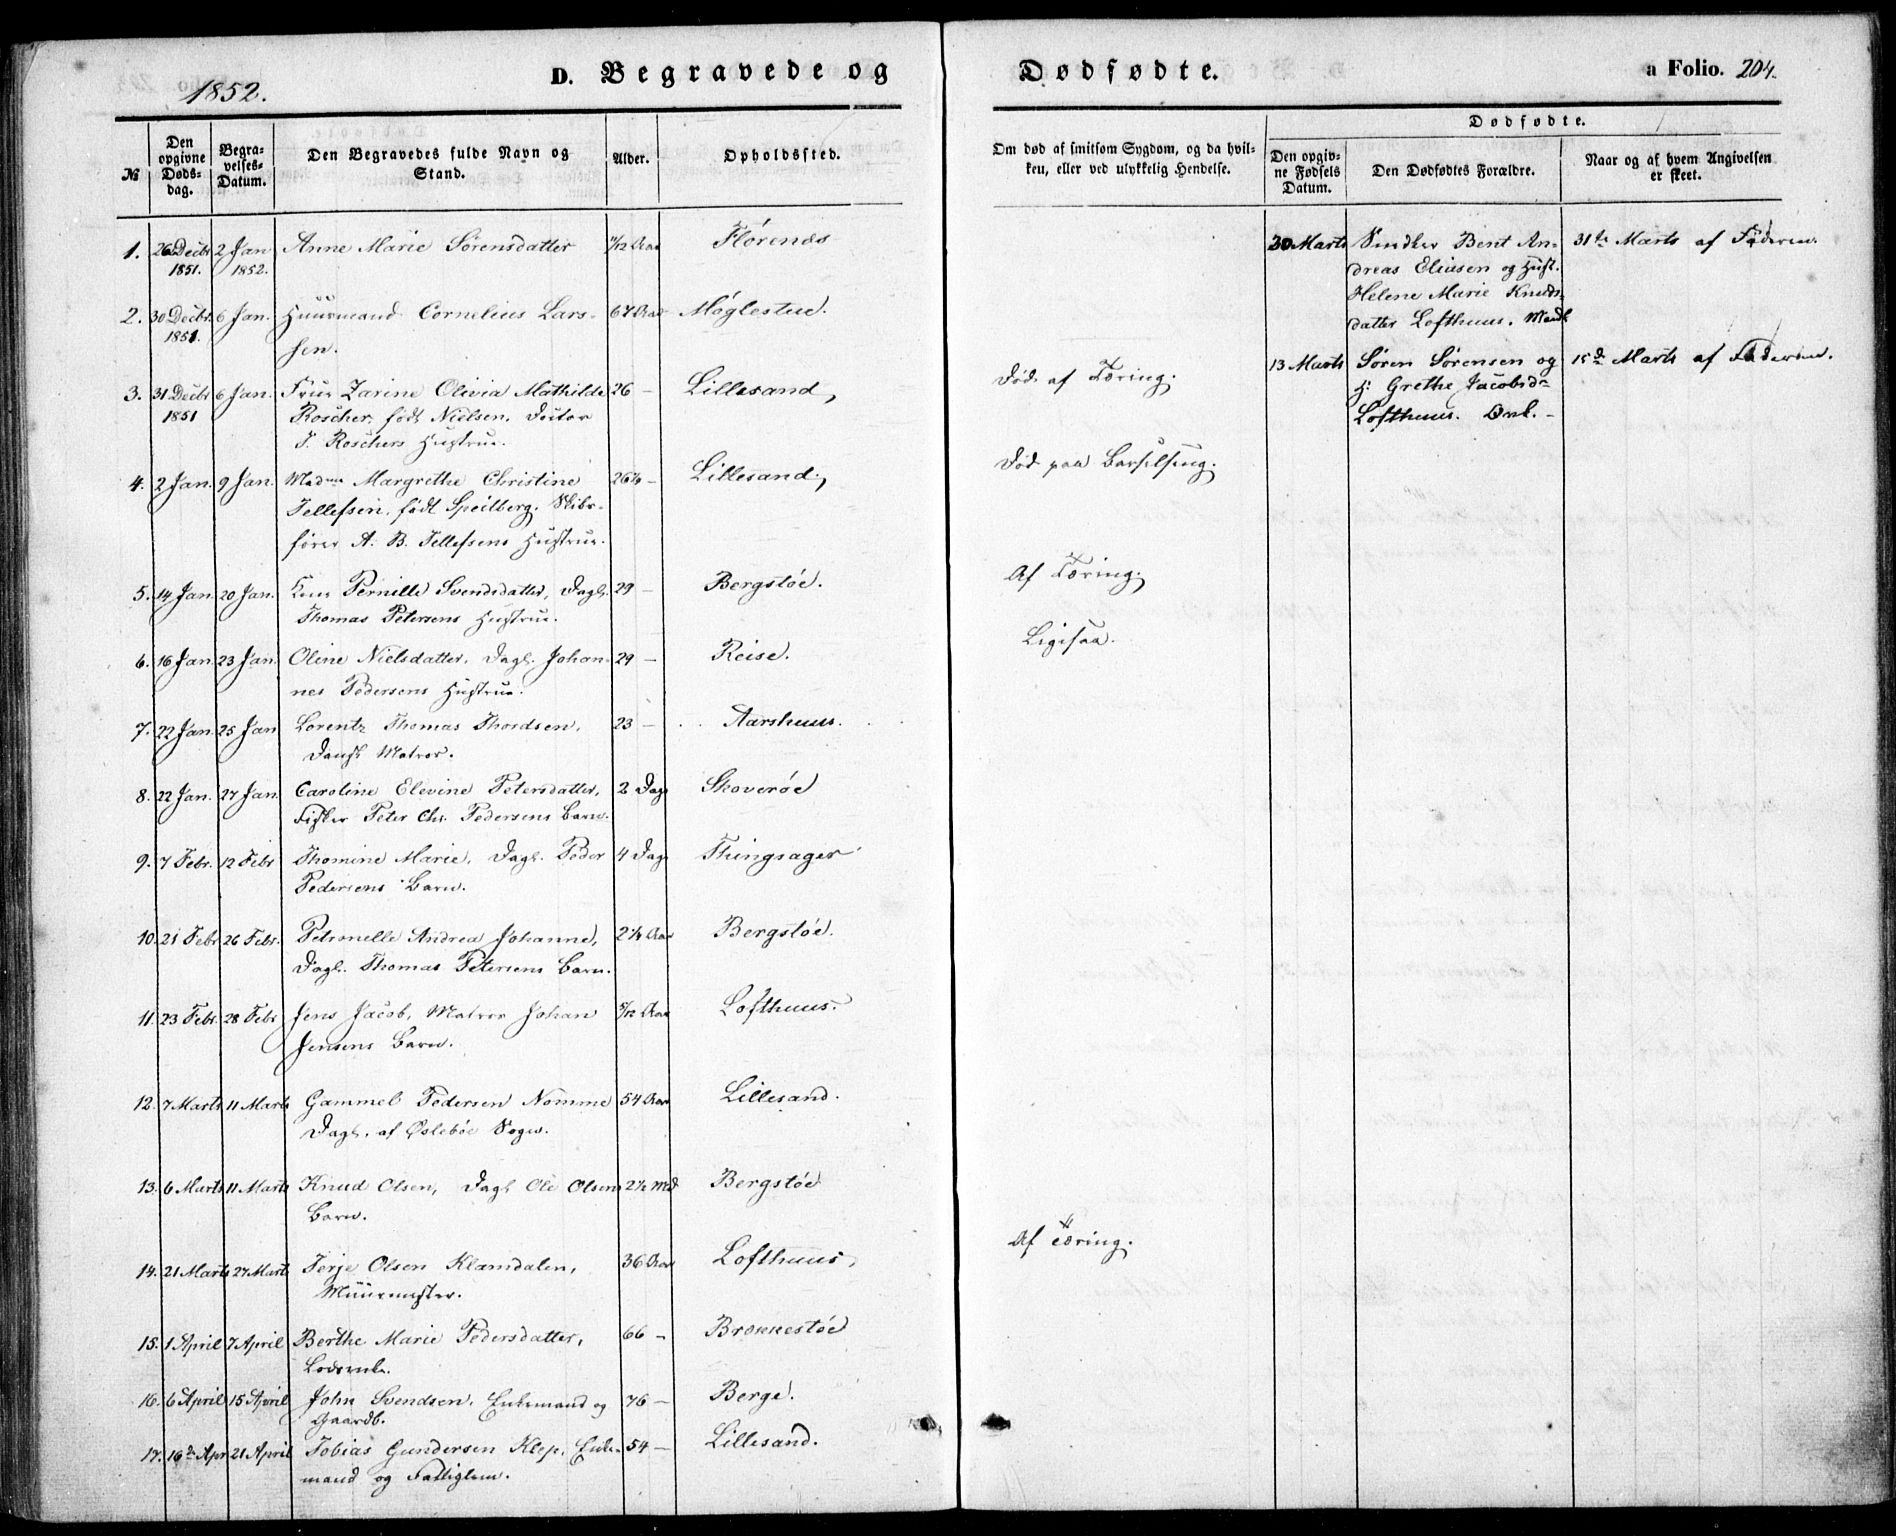 1852.
D. Begravede og
Dødfødte.
a Folio. 204.
№
Den opgivne Døds-dag.
Begra-velses-Datum.
Den Begravedes fulde Navn og Stand.
Alder.
Opholdssted.
Om død af smitsom Sygdom, og da hvil-
ken, eller ved ulykkelig Hendelse.
Dødfødte.
Den opgiv-ne Fødsels Datum.
Den Dødfødtes Forældre.
Naar og af hvem Angivelsen er skeet.
1. 26 Decbr 2 Jan Anne Marie Sörensdatter 11/12 Aar Flörenæs
1851. 1852.
2. 30 Decbr. 6 Jan. Huusmand Cornelius Lars- 67 Aar Möglestue.
1851. sen.
3. 31 Decbr 6 Jan. Frue Zarine Olivia Mathilde 26 — Lillesand, Död af Tæring.
1851 Roscher, født Nielsen, Doctor
J. Roschers Hustrue.
4. 2 Jan. 9 Jan. Madme Margrethe Christine 26½ — Lillesand, Död paa Barselseng.
Tellefsen, født Speilberg. Skibs-
förer A. B. Tellefsens Hustrue.
5. 14 Jan. 20 Jan. Pernille Svendsdatter, Dagl. 29 — Bergstöe. Af Tæring.
Thomas Petersens Hustrue.
6. 16 Jan. 23 Jan. Oline Nielsdatter, Dagl. Johan- 29 — Reise. Ligesaa.
nes Pedersens Hustrue.
7. 22 Jan. 25 Jan Lorentz Thomas Thordsen, 23 — Aarshuus.
Dansk Matros.
8. 22 Jan. 27 Jan. Caroline Elevine Petersdatter, 2 Dage Skoveröe
Fisker Peter Chr. Pedersens Barn.
9. 7 Febr. 12 Febr Thomine Marie, Dagl. Peder 4 Dage Thingsager
Pedersens Barn.
10. 21 Febr 26 Febr. Petronelle Andrea Johanne, 2¼ Aar Bergstöe.
Dagl. Thomas Petersens Barn.
11. 23 Febr. 28 Febr Jens Jacob, Matros Johan 5/12 Aar Lofthuus.
Jensens Barn.
12. 7 Marts 11 Marts Gammel Pedersen Nomme 54 Aar Lillesand.
Dagl. af Ösleböe Sogn.
13. 6 Marts 11 Marts Knud Olsen, Dagl Ole Olsens 2½ Md Bergstöe
Barn.
14. 21 Marts 27 Marts Terje Olsen Klamdalen, 36 Aar Lofthuus, Af Tæring.
Müürmester.
15. 1 April 7 April Berthe Marie Pedersdatter, 66 — Brækkestöe
Lodsenke.
16. 6 April 15 April John Svendsen, Enkemand og 76 — Berge.
Gaardb.
17. 16de Apr 21 April Tobias Gundersen Klep, Enke- 54 — Lillesand.
mand og Fattiglem.
30 Marts Snedker Bent An- 31te Marts af Faderen.
dreas Eliasen og Hust.
Helene Marie Knuds-
datter Lofthuus. Mandk
13 Marts Sören Sörensen og 15de Marts af Faderen.
H: Grethe Jacobsd
Lofthuus.